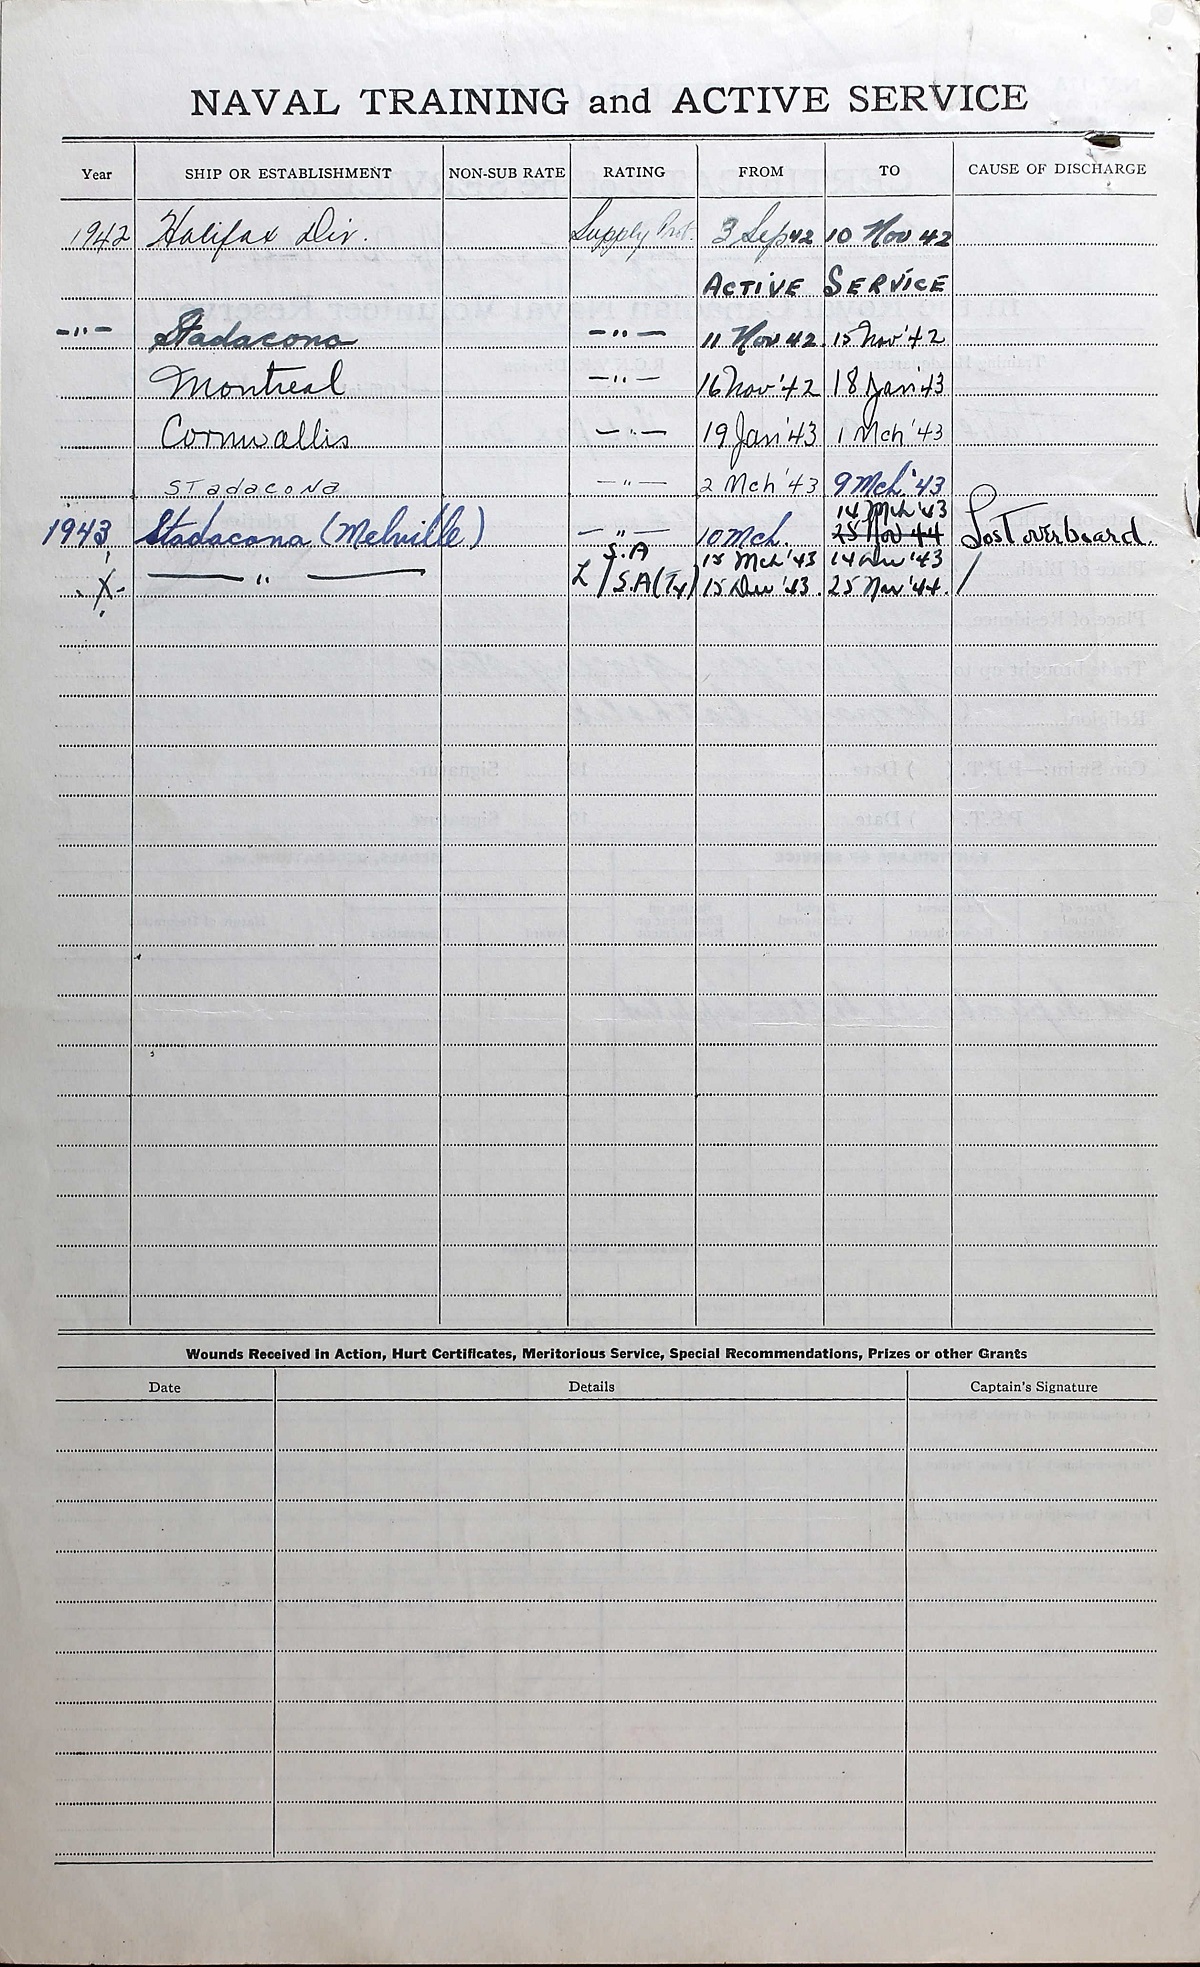 NAVAL TRAINING and ACTIVE SERVICE
Year SHIP OR ESTABLISHMENT NON-SUB RATE RATING FROM TO CAUSE OF DISCHARGE
1942 Halifax Div. Supply Prob. 3 Sep 42 10 Nov 42
ACTIVE SERVICE
-"- Stadacona -"- 11 Nov 42. 15 Nov '42
Montreal -"- 16 Nov '42 18 Jan '43
Cornwallis -"- 19 Jan '43 1 Mch '43
Stadacona -"- 2 Mch '43 9 Mch. '43
14 Mch '43
1943 Stadacona (Melville) -"- 10 Mch. 25 Nov 44 Lost overboard.
S.A 15 Mch '43 14 Dec '43
X — " — L/S.A(Ty) 15 Dec '43. 25 Nov '44. /
Wounds Received in Action, Hurt Certificates, Meritorious Service, Special Recommendations, Prizes or other Grants
Date Details Captain's Signature